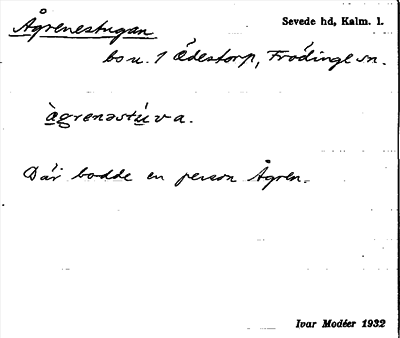 Ågrenestugan
Sevede hd, Kalm. l.
bo u. 1 Ödestorp, Frödinge sn.
àgrenəstúva.
Där bodde en person Ågren.
Ivar Modéer 1932